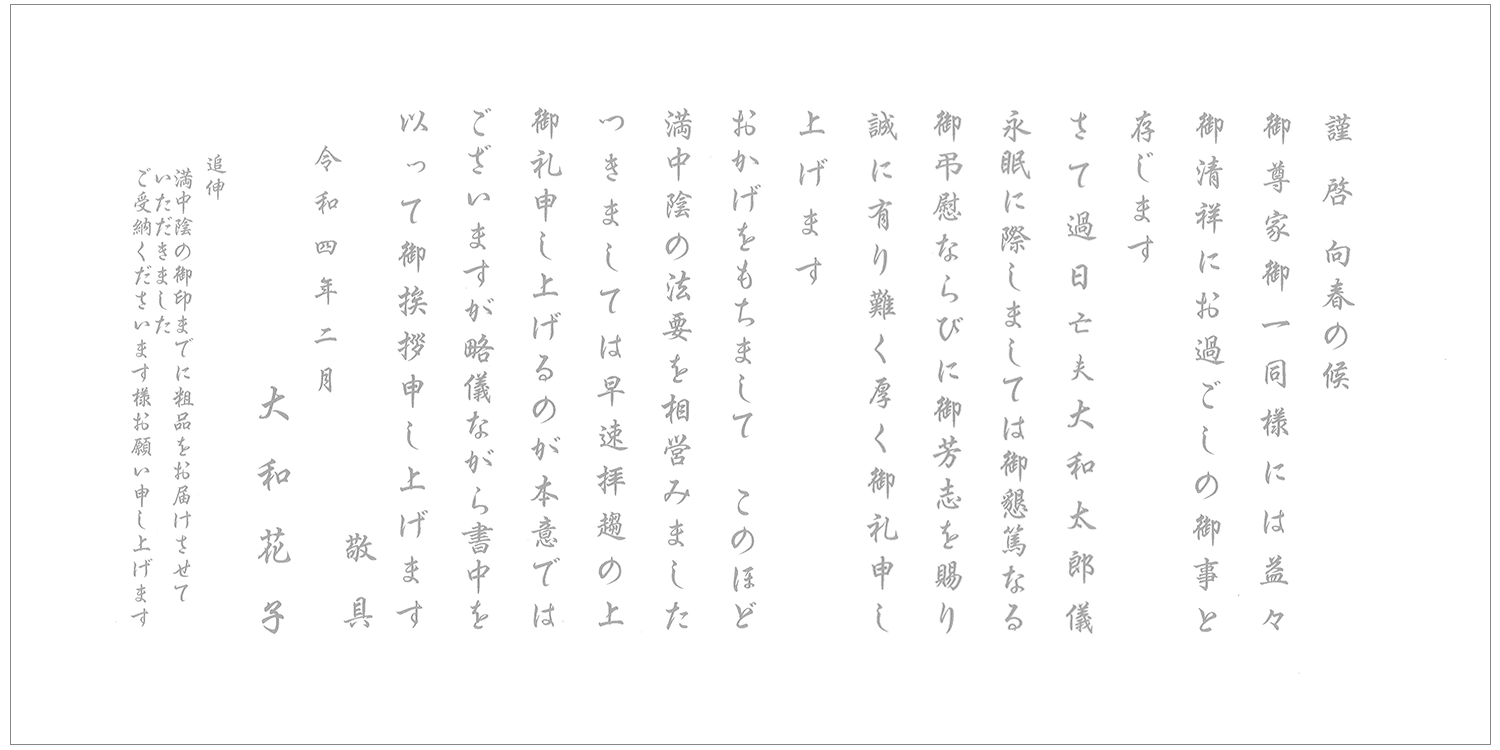 謹啓 向春の候
御尊家御一同様には益々
御清祥にお過ごしの御事と
存じます
さて過日亡夫大和太郎儀
永眠に際しましては御懇篤なる
御弔慰ならびに御芳志を賜り
誠に有り難く厚く御礼申し
上げます
おかげをもちまして このほど
満中陰の法要を相営みました
つきましては早速拝趨の上
御礼申し上げるのが本意では
ございますが略儀ながら書中を
以って御挨拶申し上げます
敬具
令和四年二月
大和花子
追伸
満中陰の御印までに粗品をお届けさせて
いただきました
ご受納くださいます様お願い申し上げます